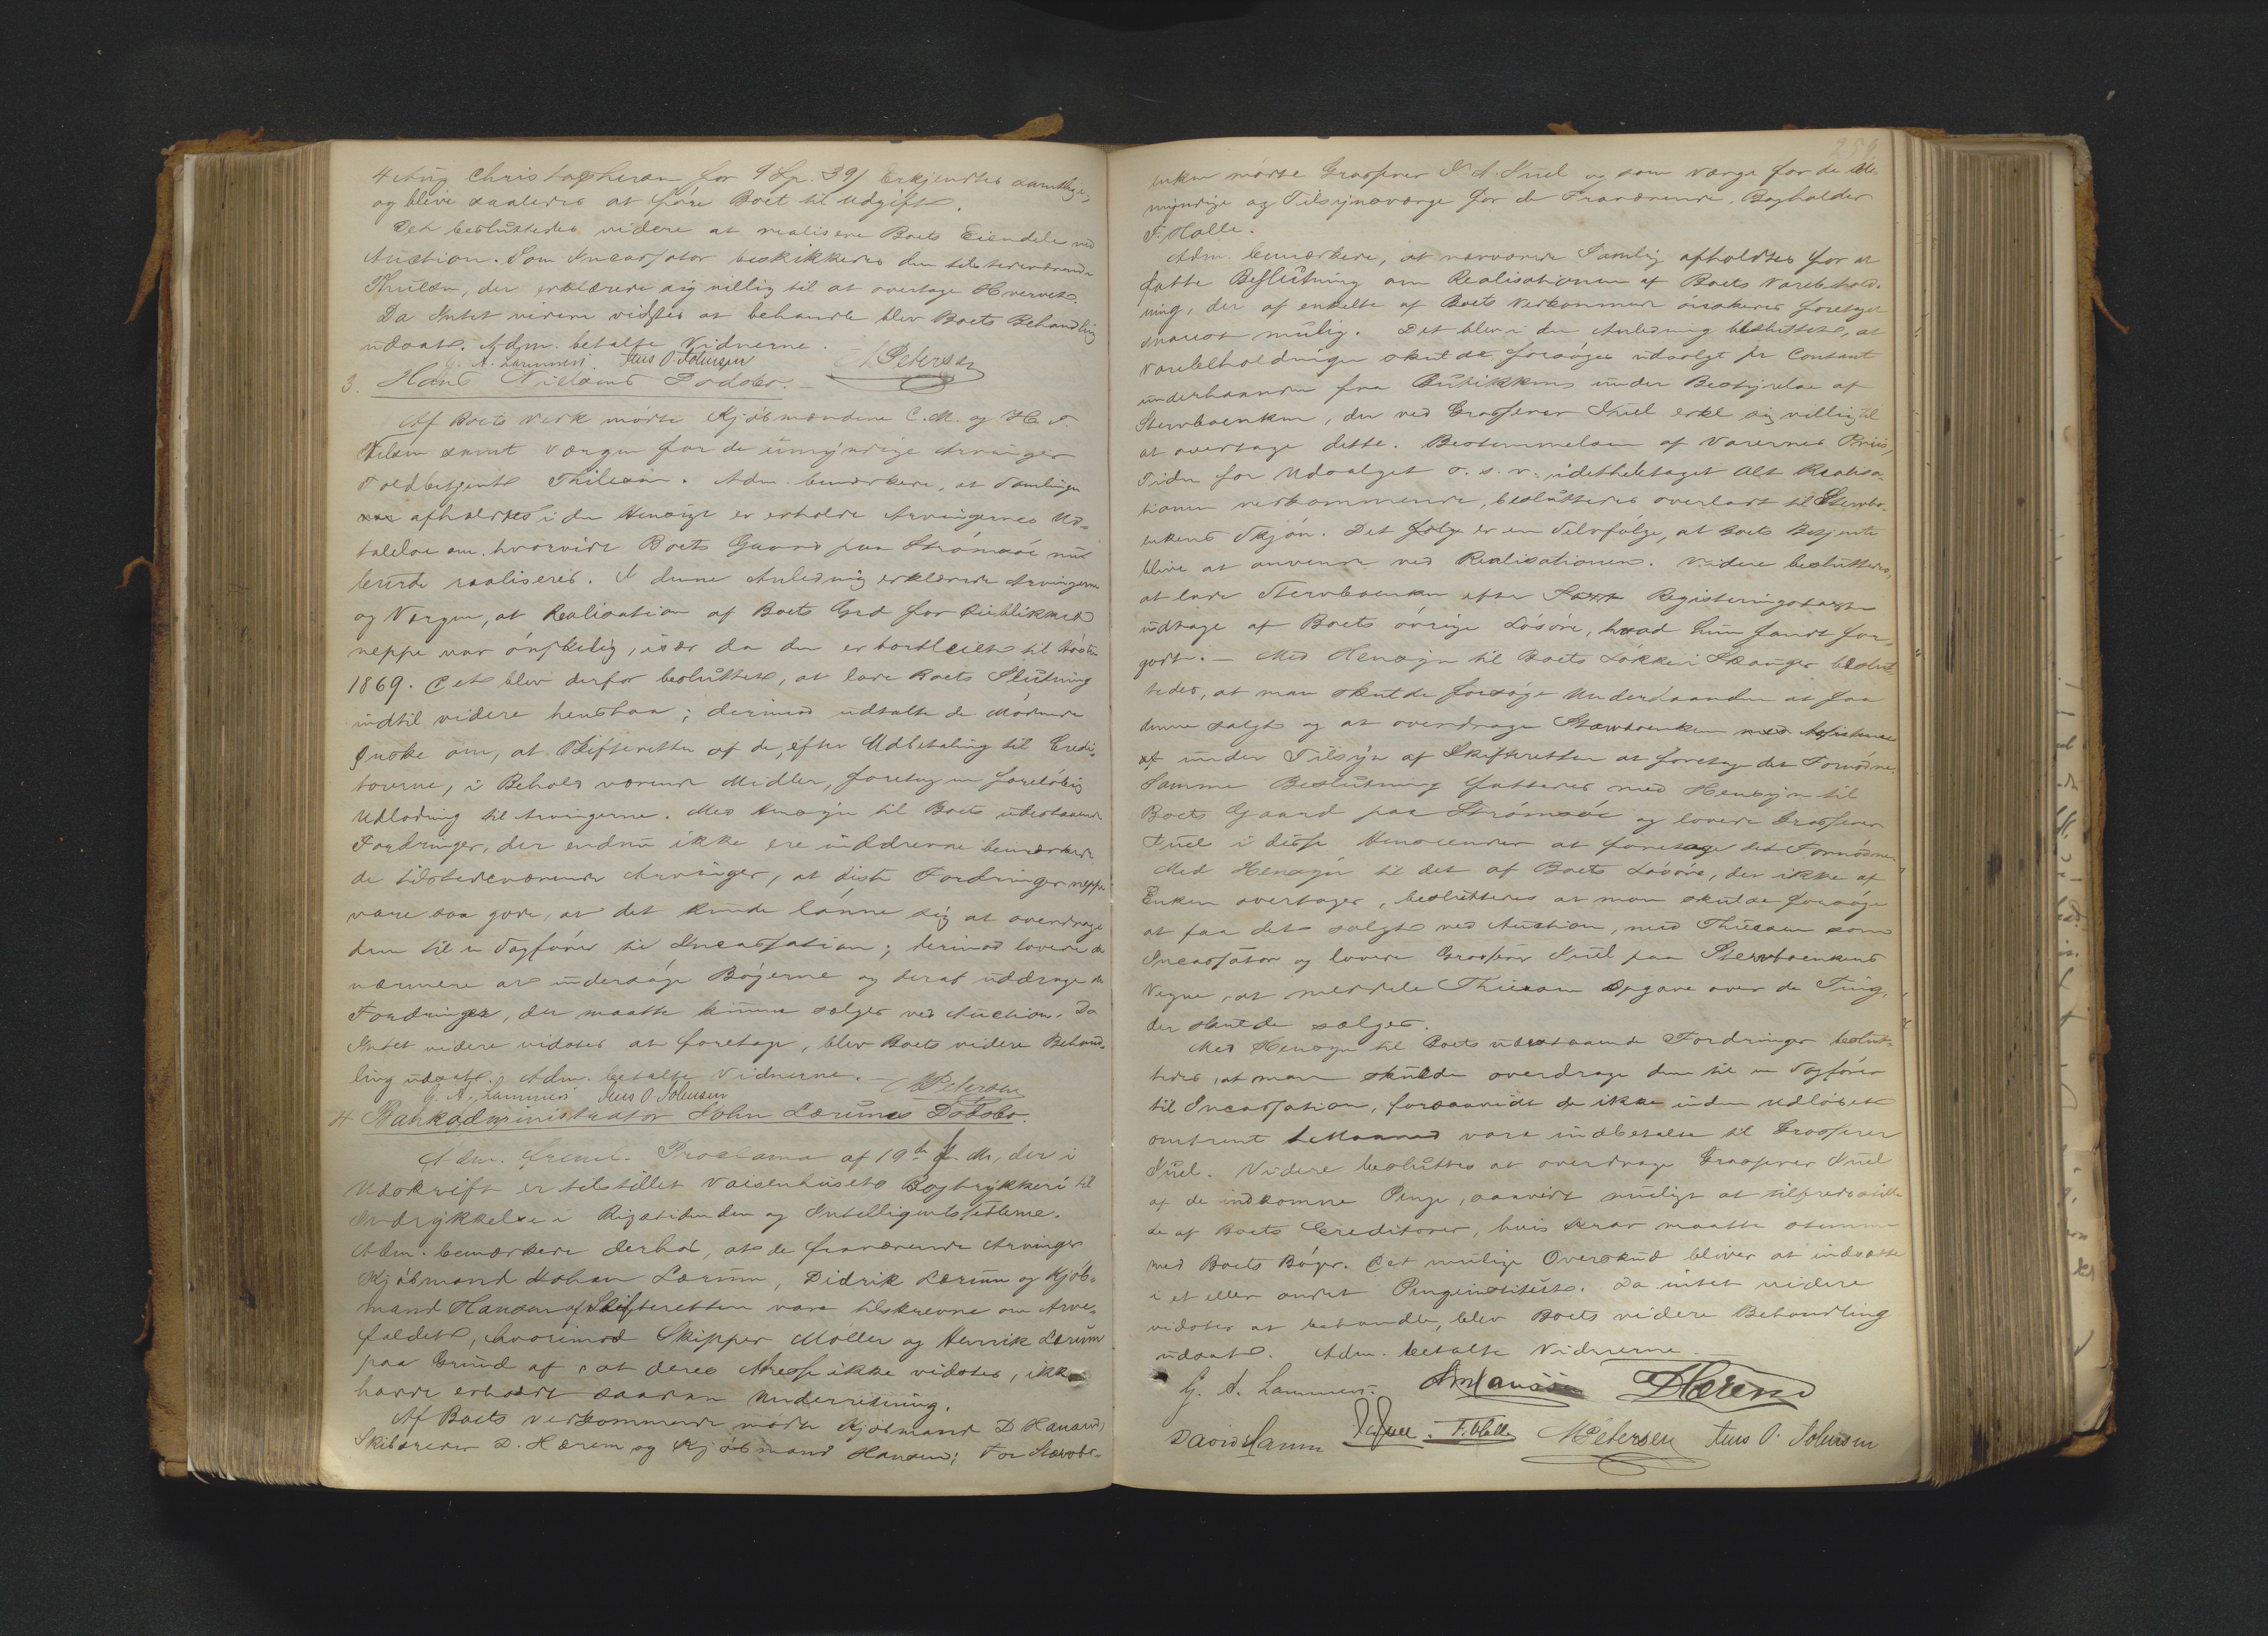 4 Aug Christophersen for 9 Sp. 39 / Erkjendtes samtlige,
og blive saaledes at føre Boet til Udgift.
Det besluttedes videre at realisere Boets Eiendele ved
Auction. Som Incassator beskikkedes den tilstedeværende
Thuesen, der erklærede sig villig til at overtage Hvervet.
Da Intet videre vidstes at behandle blev Boets Behandling
udsat. Adm. betalte Vidnerne.
G. A. Lammers. Jens O Johnsen MPetersen
3. Hans Nielsens Dødsbo.
Af Boets Vedk mødte Kjøbmændene C. M. og H. J.
Nilsen samt Værgen for de umyndige Arvinger
Toldbetjent Thilesen. Adm. bemærkede, at Samlingen
afholdtes i den Hensigt at erholde Arvingernes Ud-
talelse om, hvorvidt Boets Gaard paa Strømsøe nu
burde realiseres. I denne Anledning erklærede Arvingerne
og Værgen, at Realisation af Boets Grd for Øieblikket
neppe var ønskelig, især da den er bortleiet til Høsten
1869. Det blev derfor besluttet, at lade Boets Slutning
indtil videre henstaa; derimod udtalte de Mødende
Ønske om, at Skifteretten af de, efter Udbetaling til Credi-
torerne, i Behold værende Midler, foretog en foreløbig
Udlodning til Arvingerne. Med Hensyn til Boets udestaaende
Fordringer, der endnu ikke ere inddrevne bemærkede
de tilstedeværende Arvinger, at disse Fordringer neppe
vare saa gode, at det kunde lønne sig at overdrage
dem til en Sagfører til Incassation; derimod lovede de
nærmere at undersøge Bøgerne og deraf uddrage de
Fordringer, der maatte kunne sælges ved Auction. Da
Intet videre vidstes at foretage, blev Boets videre Behand-
ling udsat. Adm. betalte Vidnerne.
G. A. Lammers Jens O Johnsen MPetersen
4 Bankadministrator John Lærums Dødsbo.
Adm. freml. Proclama af 19de d. M., der i
Udskrift er tilstillet Vaisenhusets Bogtrykkeri til
Indrykkelse i Rigstidenden og Intelligentssedlerne.
Adm. bemærkede derhos, at de fraværende Arvinger
Kjøbmand Johan Lærum, Didrik Lærum og Kjøb-
mand Hansen af Skifteretten vare tilskrevne om Arve-
faldet, hvorimod Skipper Møller og Henrik Lærum
paa Grund af, at deres Adresse ikke vidstes, ikke
havde erholdt saadan Underretning.
Af Boets Vedkommende mødte Kjøbmand D Hanand,
Skibsreder D. Hærem og Kjøbmand Hansen; For Stervbo-
259
enken mødte Grosserer I A. Juel og som Værge for de U-
myndige og Tilsynsværge for de Fraværende, Bogholder
F. Holle.
Adm. bemærkede, at nærværende Samling afholdtes for at
fatte Beslutning om Realisationen af Boets Varebehold-
ning, der af enkelte af Boets Vedkommende ønskedes foretaget
snarest mulig. Det blev i den Anledning besluttet, at
Varebeholdningen skulde forsøges udsolgt pr Contant
underhaanden fra Butikken under Bestyrelse af
Stervboenken, der ved Grosserer Juel erkl sig villig til
at overtage dette. Bestemmelsen af Varernes Priis,
Tiden for Udsalget o. s. v. idethele taget Alt Realisa-
tionen vedkommende, besluttedes overladt til Stervbo-
enkens Skjøn. Det følg er en Selvfølge, at Boets Betjente
blive at anvende ved Realisationen. Videre besluttedes,
at lade Stervboenken efter Taxt Registeringstaxten
udtage af Boets øvrige Løsøre, hvad hun fandt for
godt. — Med Hensyn til Boets Løkke i Skanger beslut-
tedes, at man skulde forsøge Underhaanden at faa
denne solgt og at overdrage Stervboenken med Assistance
af under Tilsyn af Skifteretten at foretage det Fornødne.
Samme Beslutning fattedes med Hensyn til
Boets Gaard paa Strømsøe og lovede Grosserer
Juel i disse Henseender at foretage det Fornødne.
Med Hensyn til det af Boets Løsøre, der ikke af
Enken overtages, besluttedes at man skulde forsøge
at faa det solgt ved Auction, med Thuesen som
Incassator og lovede Grosserer Juel paa Stervboenkens
Vegne, at meddele Thuesen Opgave over de Ting,
der skulde sælges.
Med Hensyn til Boets udestaaende Fordringer beslut-
tedes, at man skulde overdrage dem til en Sagfører
til Incassation, forsaavidt de ikke inden Udløbet
omtrent Maaned vare indbetalte til Grosserer
Juel. Videre besluttes at overdrage Grosserer Juel
af de indkomne Penge, saavidt muligt at tilfredsstille
de af Boets Creditorer, hvis Krav maatte stemme
med Boets Bøger. Det mulige Overskud bliver at indsætte
i et eller andet Pengeinstitut. Da intet videre
vidstes at behandle, blev Boets videre Behandling
udsat. Adm. betalte Vidnerne.
G. A. Lammers. AmHanssen DHærem
David Hanna IAJuel. F. Holle MPetersen Jens O. Johnsen